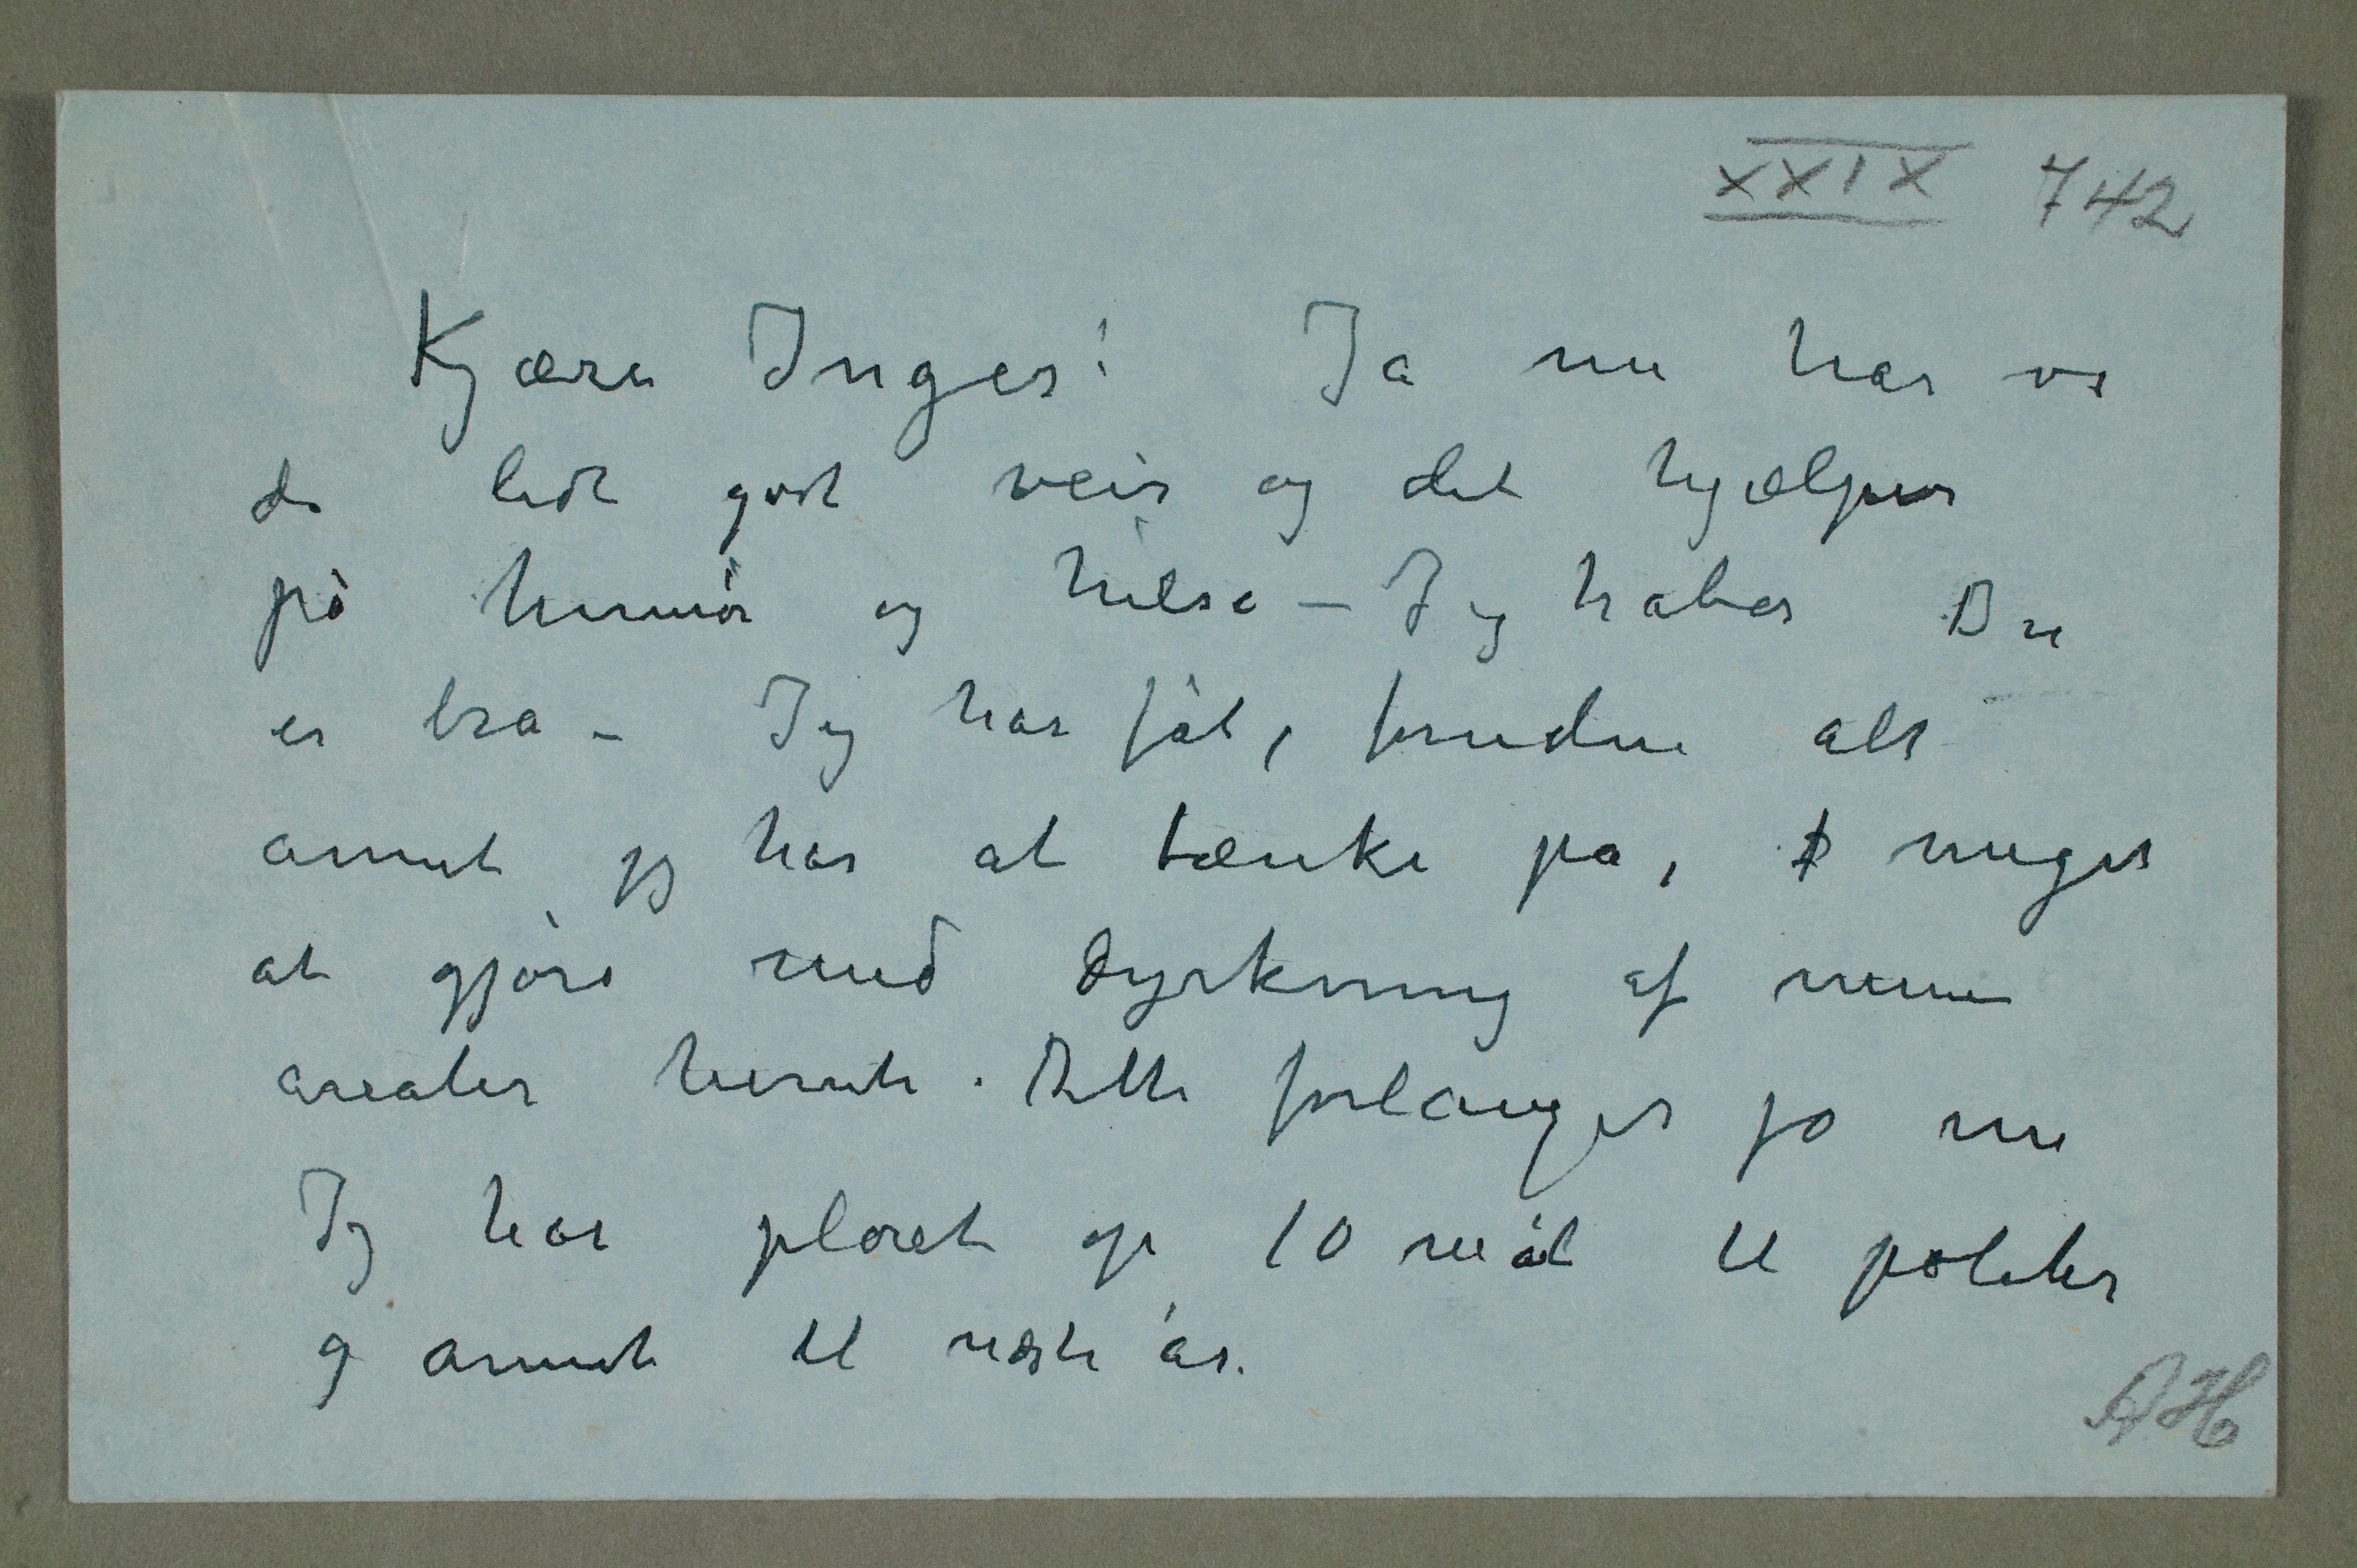 XXIX 742
Kjære Inger! Ja nu har vi
da lidt godt veir og det hjælper
på humør og helse – Jeg håber Du
er bra – Jeg har fåt, foruden alt
annet jeg har at tænke på, meget
at gjøre med dyrkning af mine
arealer herute. Dette forlanges jo nu
Jeg har pløiet op 10 mål til poteter
og annet til næste år.
AH